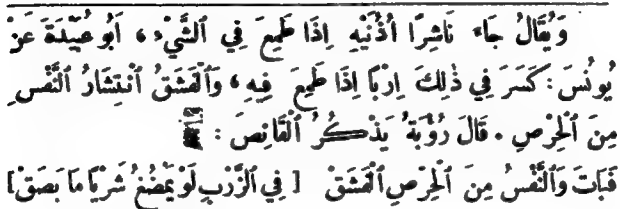 وَيُقَالُ جَاءَ نَاشِرًا أُذُنَيْهِ إِذَا طَمِعَ فِي ٱلشَّيْءِ، أَبُو عُبَيْدَةَ عَنْ
يُونُسَ: كَسَرَ فِي ذٰلِكَ إِرْبًا إِذَا طَمِعَ فِيهِ، وَٱلْفَشَقُ ٱنْتِشَارُ ٱلنَّفْسِ
مِنَ ٱلْحِرْصِ. قَالَ رُؤْبَةُ يَذْكُرُ ٱلْقَانِصَ:
فَبَاتَ وَٱلنَّفْسُ مِنَ ٱلْحِرْصِ ٱلْفَشَقْ [فِي ٱلزَّرْبِ لَوْ يَمْضُغُ شَرْيًا مَا بَصَقْ]